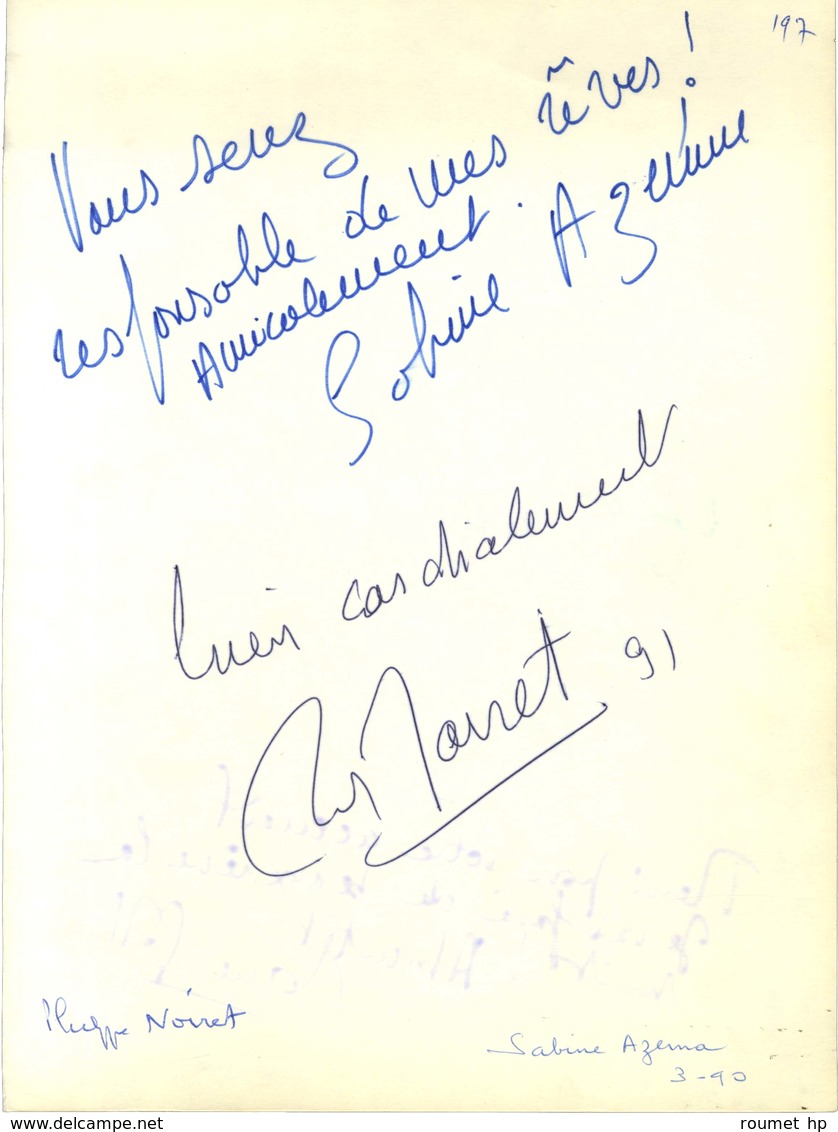 197
Vous serez
responsable de mes rêves !
Amicalement.
Sabine Azéma
bien cordialement
Ph Noiret 91
Philippe Noiret
Sabine Azema
3-90
www.delcampe.net
roumet hp